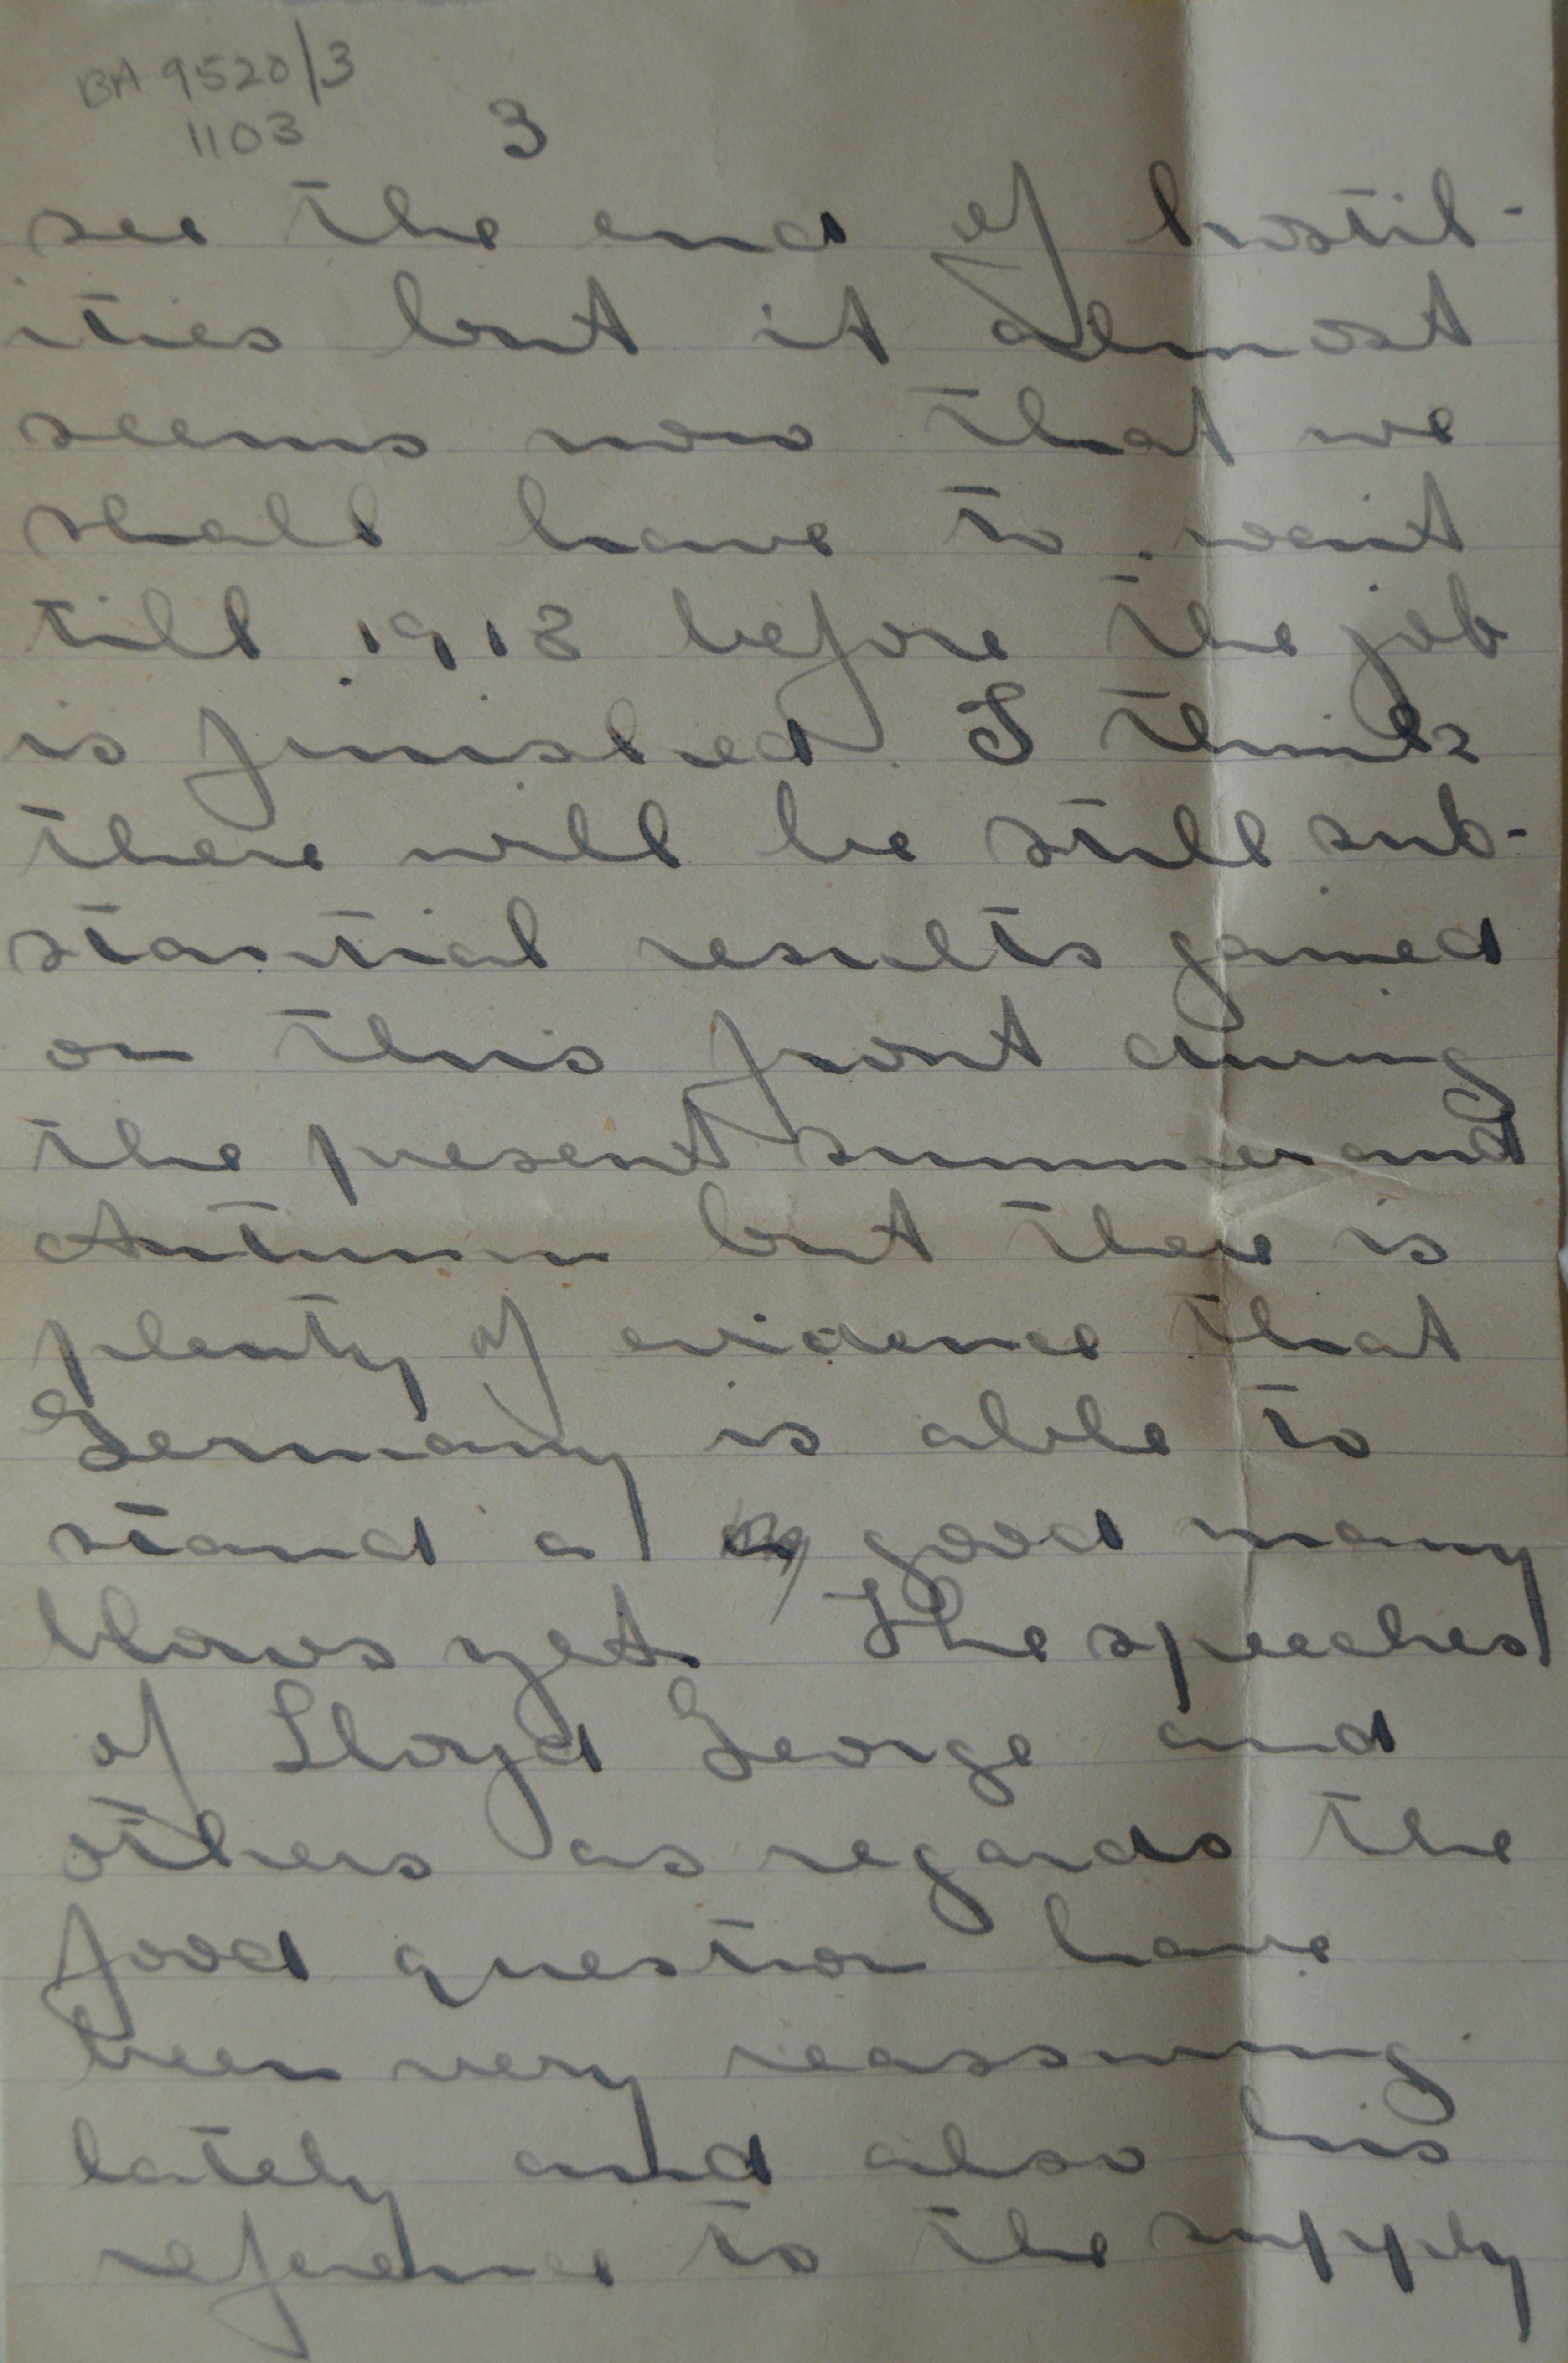 BA 9520/3
1103
3
see the end of hostil-
ities but it almost
seems now that we
shall have to wait
till 1918 before the job
is finished. I think
there will be still sub-
stantial results gained
on this front during
the present summer and
Autumn but there is
plenty of evidence that
Germany is able to
stand a good many
blows yet. The speeches
of Lloyd George and
others as regards the
food question have
been very reassuring
lately and also his
reference to the supply